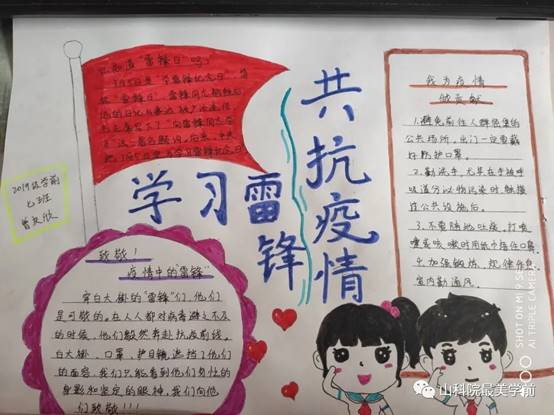 你知道"雷锋日"吗?
学习雷锋
共抗疫情
2019级学前
七班
致敬!
疫情中的"雷锋"
穿白大褂的"雷锋"们,他们
是可敬的。在人人都对病毒避之不及
的时候,他们毅然奔赴抗疫前线。
白大褂、口罩、护目镜遮挡了他们
的面容,我们只能看到他们身忙的
坐影和坚定的眼神,我们向他
们致敬!!!
我为疫情
做贡献
1.避免前往人群密集的
公共场所。出门一定要戴
好防护口罩。
2.勤洗手,尤其在手被呼
吸道分泌物污染时、触摸
过公共设施后。
3.不要随地吐痰,打喷
嚏或咳嗽时用纸巾捂住口鼻。
4.加强锻炼,规律作息,
室内勤通风。
SHOT ON MI 9 SE
AI TRIPLE CAMERA
山科院最美学前